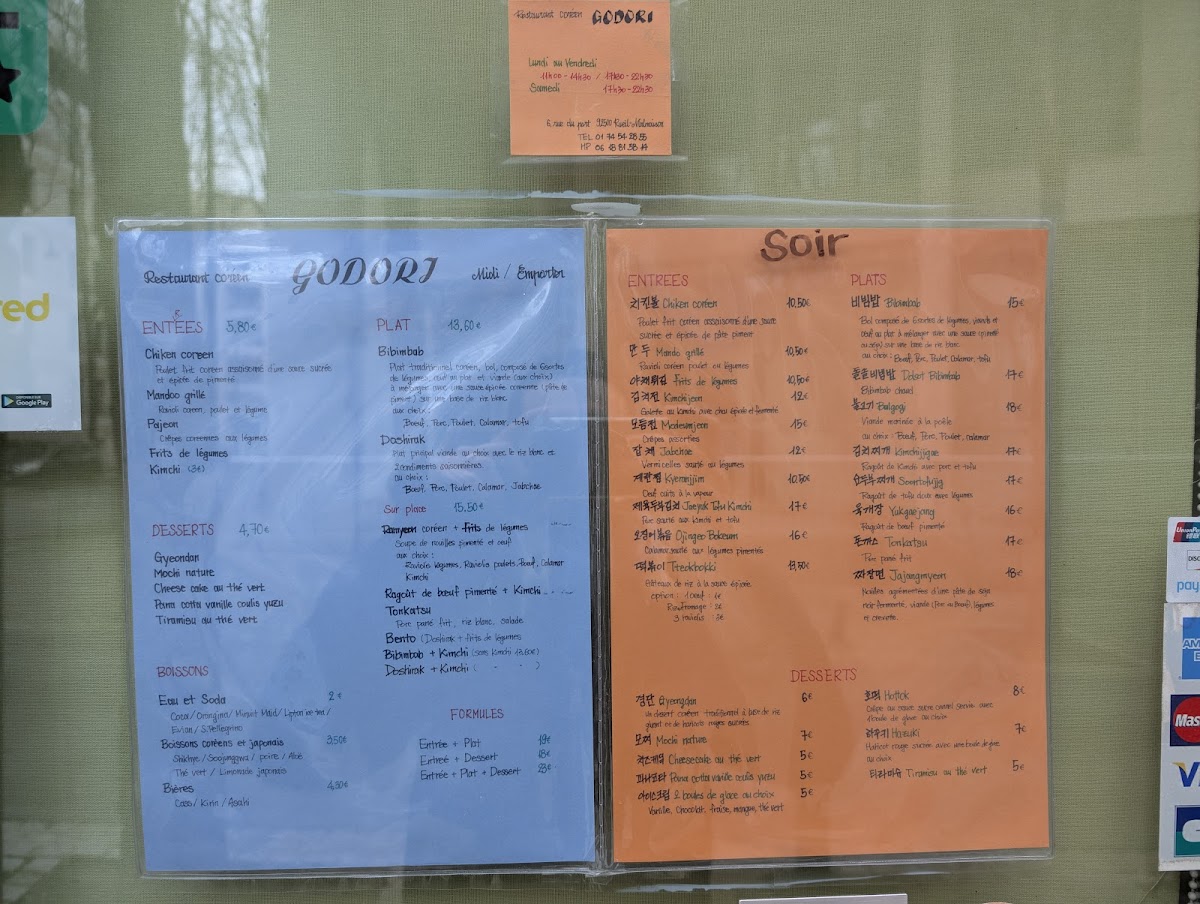 Restaurant coréen GODORI
Lundi au Vendredi
11h00 - 14h30 / 17h30 - 22h30
Samedi 17h30 - 22h30
6, rue du port 92500 Rueil-Malmaison
TEL 01 74 54 28 55
red
Google Play
Restaurant coréen GODORI Midi / Emporter
ENTÉES 5,80€
Chiken coréen
Poulet frit coréen assaisonné d'une sauce sucrée
et épicée de pimenté
Mandoo grillé
Ravioli coréen, poulet et légume
Pajeon
Crêpes coréennes aux légumes
Frits de légumes
Kimchi (3€)
DESSERTS 4,70€
Gyeondan
Mochi nature
Cheese cake au thé vert
Pana cotta vanille coulis yuzu
Tiramisu au thé vert
BOISSONS
Eau et Soda 2€
Coca / Orangina / Minut Maid / Lipton ice tea /
Evian / S.Pellegrino
Boissons coréens et japonais 3,50€
Shikhye / Soojungwa / poire / Aloé
Thé vert / Limonade japonais
Bières 4,90€
Cass / Kirin / Asahi
PLAT 13,60€
Bibimbab
Plat traditionnel coréen, bol, composé de 6 sortes
de légumes, œuf au plat et viande (aux choix)
à mélanger avec une sauce épicée coréenne (pâte de
piment) sur une base de riz blanc
aux choix :
Bœuf, Porc, Poulet, Calamar, tofu
Doshirak
Plat principal viande au choix avec le riz blanc et
2 condiments saisonnières
au choix :
Bœuf, Porc, Poulet, Calamar, Jabchae
Sur place 15,50€
Ramyeon coréen + frits de légumes
Soupe de nouilles pimenté et œuf
aux choix :
Raviolis légumes, Raviolis poulets, Bœuf, Calamar
Kimchi
Ragoût de bœuf pimenté + Kimchi
Tonkatsu
Porc pané frit, riz blanc, salade
Bento (Doshirak + frits de légumes
Bibimbab + Kimchi (sans kimchi 13,60€)
Doshirak + Kimchi (
FORMULES
Entrée + Plat 19€
Entrée + Dessert 18€
Entrée + Plat + Dessert 23€
Soir
ENTREES
치킨볼 Chiken coréen 10,50€
Poulet frit coréen assaisonné d'une sauce
sucrée et épicée de pâte piment
만두 Mando grillé 10,50€
Ravioli coréen poulet ou légumes
야채튀김 Frits de légumes 10,50€
김치전 Kimchijeon 12€
Galette au kimchi avec chou épicée et fermenté
모듬전 Modeumjeon 15€
Crêpes assorties
잡채 Jabchae 12€
Vermicelles sauté au légumes
계란찜 Kyeranjjim 10,50€
Oeuf cuits à la vapeur
제육두부김치 Jaeyok Tofu Kimchi 17€
Porc sauté aux kimchi et tofu
오징어볶음 Ojinger Bokeum 16€
Calamar sauté aux légumes pimentés
떡볶이 Tteokbokki 13,50€
Gâteaux de riz à la sauce épicée
option : 1 oeuf 1€
Rawfromage 3€
PLATS
비빔밥 Bibimbab 15€
Bol composé de 6 sortes de légumes, viande et
oeuf au plat à mélanger avec une sauce (pimenté
ou soja) sur une base de riz blanc
au choix : Bœuf, Porc, Poulet, Calamar, tofu
돌솥비빔밥 Dolsot Bibimbab 17€
Bibimbab chaud
불고기 Bulgogi 18€
Viande marinée à la poêle
au choix : Bœuf, Porc, Poulet, calamar
김치찌개 Kimchijigae 17€
Ragoût de Kimchi avec porc et tofu
순두부찌개 17€
Ragoût de tofu doux avec légumes
육개장 Yukgaejang 16€
Ragoût de bœuf pimenté
돈까스 Tonkatsu 17€
Porc pané frit
짜장면 Jajangmyeon 18€
Noilles agrémentées d'une pâte de soja
noir fermenté, viande (Porc ou Bœuf), légumes
et crevette
DESSERTS
경단 Gyeongdan 6€
Un dessert coréen traditionnel à base de riz
gluant et de haricots rouges sucrés
모찌 Mochi nature 7€
치즈케익 Cheesecake au thé vert 5€
파나코타 Pana cotta vanille coulis yuzu 5€
아이스크림 2 boules de glace au choix 5€
Vanille, Chocolat, fraise, mangue, thé vert
호떡 Hottok 8€
Crêpe au sucre caramel servie avec
boule de glace au choix
하우키 Hazuki 7€
Haricot rouge sucrée avec une boule de glace
au choix
티라미슈 Tiramisu au thé vert 5€
UnionPay